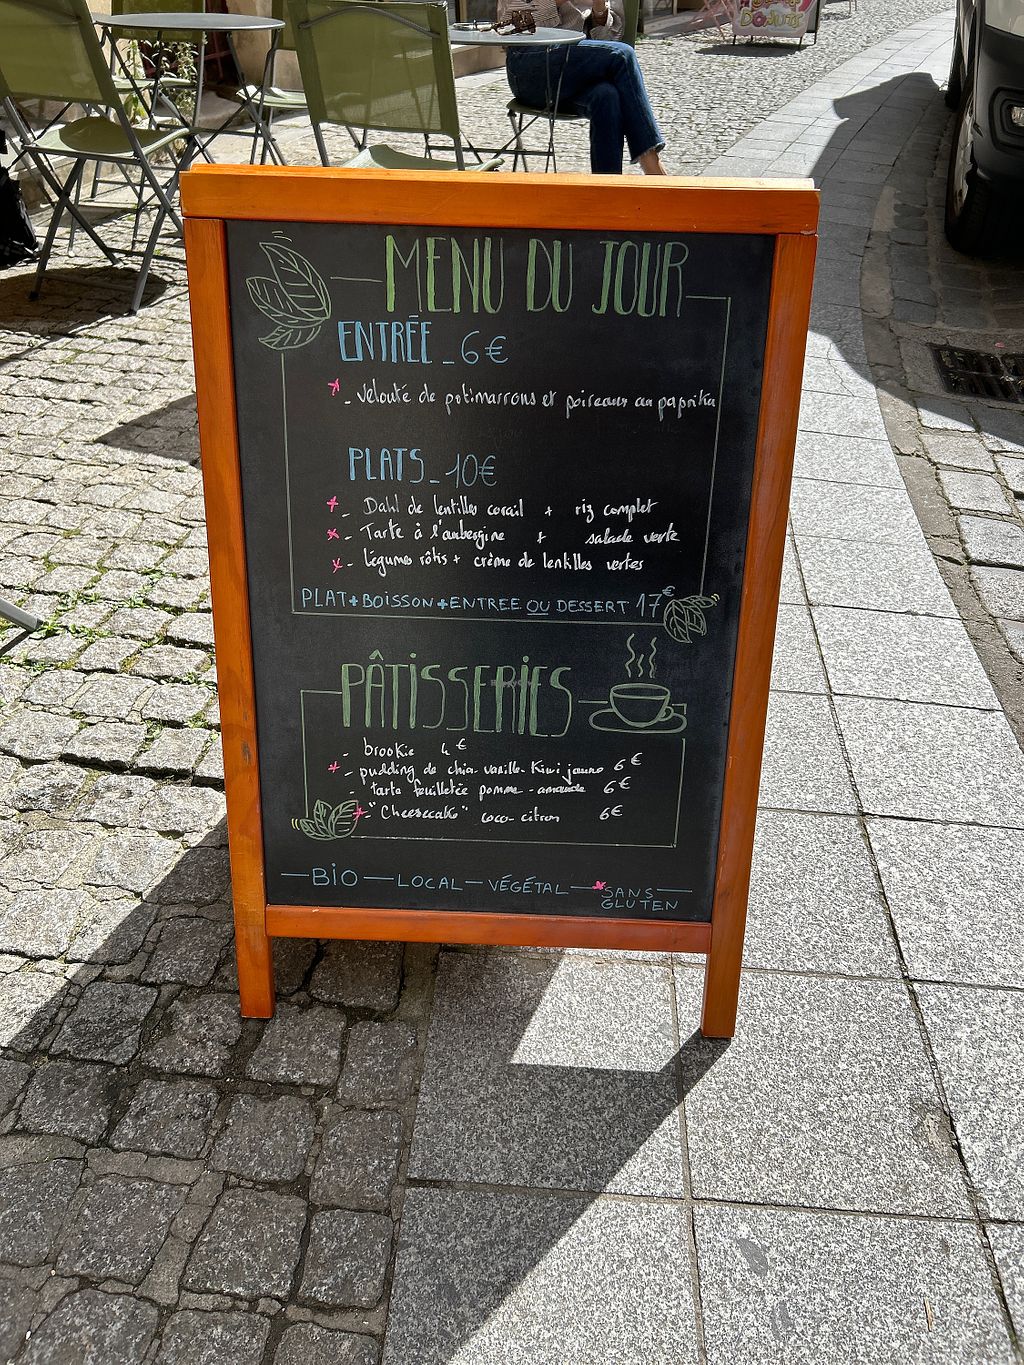 MENU DU JOUR
ENTRÉE - 6€
* - velouté de potimarrons et poireaux au paprika
PLATS - 10€
* - Dahl de lentilles corail + riz complet
* - Tarte à l'aubergine + salade verte
* - légumes rôtis + crème de lentilles vertes
PLAT+BOISSON+ENTREE OU DESSERT 17€
PÂTISSERIES
- brookie 4€
* - pudding de chia - vanille - Kiwi jaune 6€
- tarte feuilletée pomme - amande 6€
* - "Cheesecake" coco - citron 6€
— BIO — LOCAL — VÉGÉTAL — * SANS GLUTEN